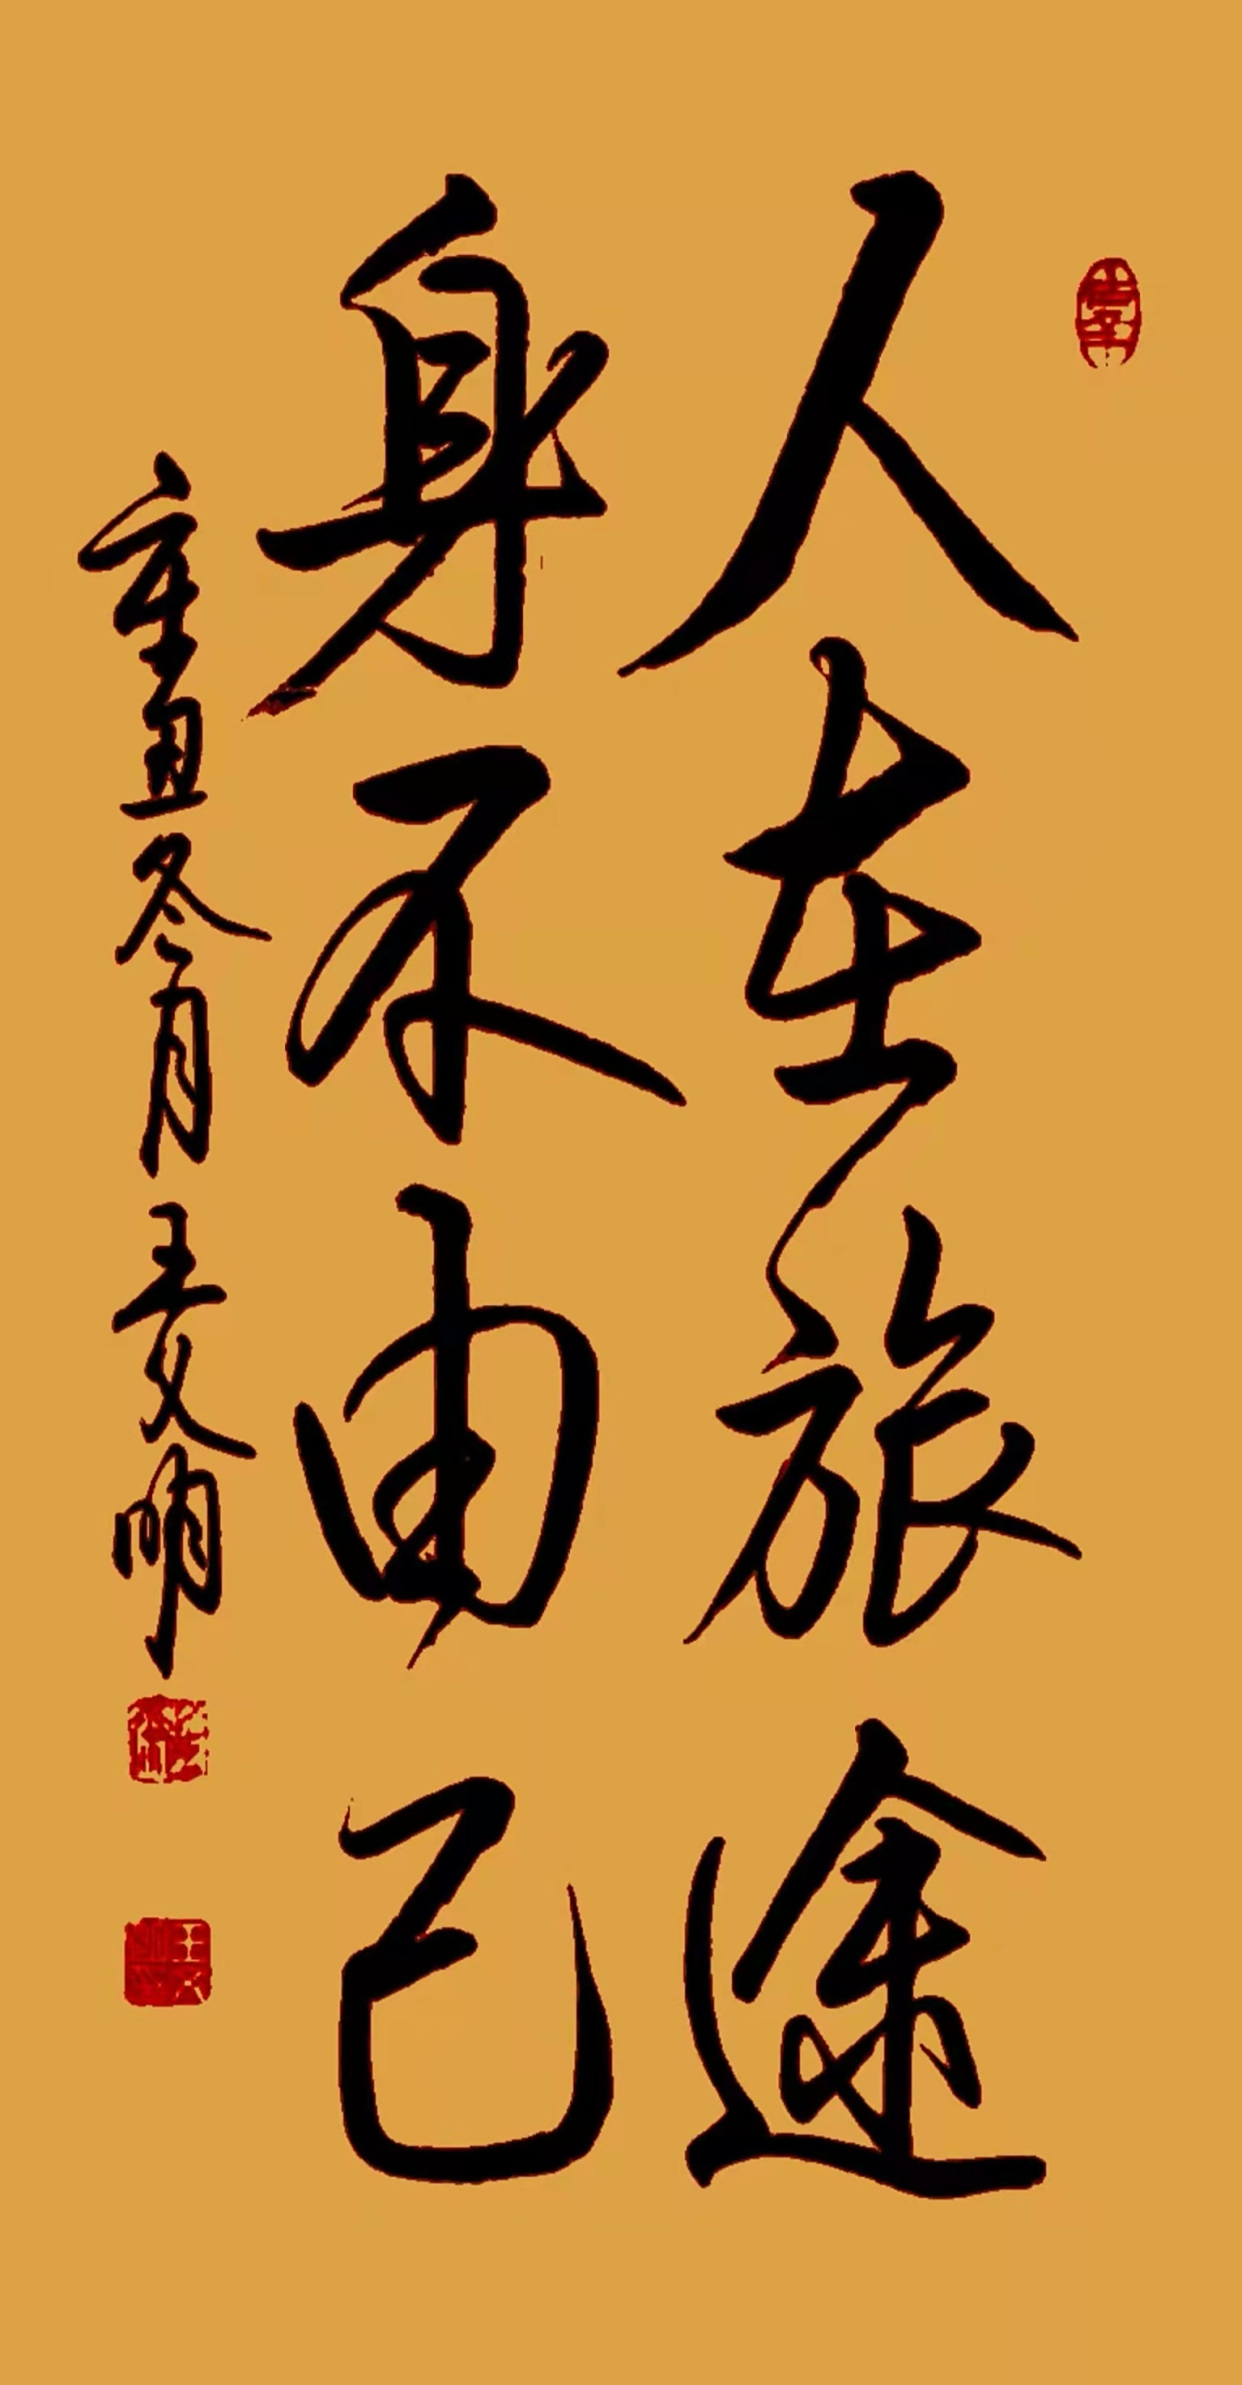 人在旅途
身不由己
辛丑冬月 王文明